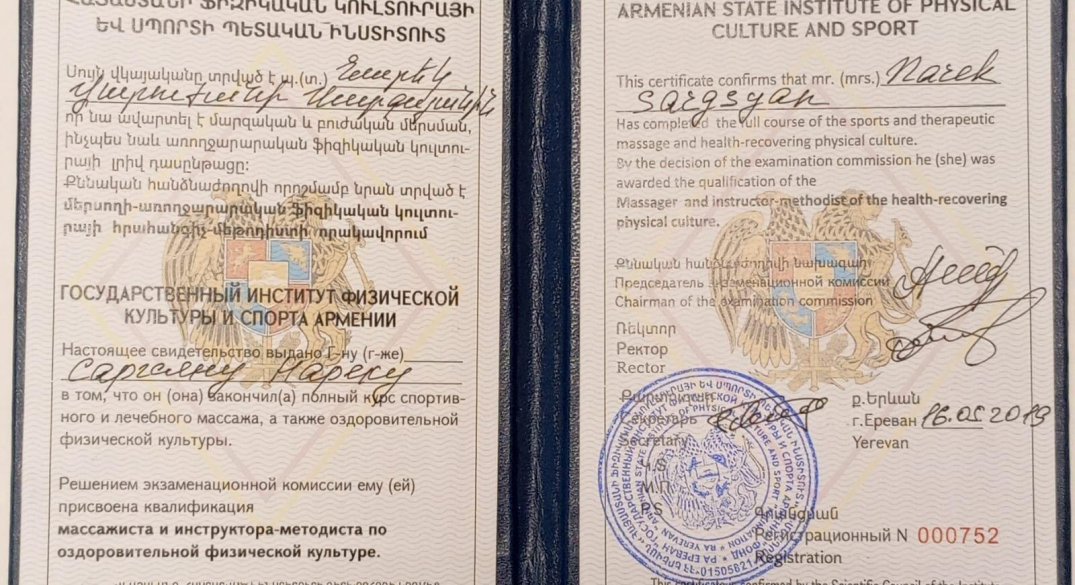 ՀԱՅԱՍՏԱՆԻ ՖԻԶԻԿԱԿԱՆ ԿՈՒԼՏՈՒՐԱՅԻ
ԵՎ ՍՊՈՐՏԻ ՊԵՏԱԿԱՆ ԻՆՍՏԻՏՈՒՏ
Սույն վկայականը տրված է պ.(տ.) Նարեկ
Սարգսյանին
որ նա ավարտել է մարզական և բուժական մերսման,
ինչպես նաև առողջարարական ֆիզիկական կուլտու-
րայի լրիվ դասընթացը:
Քննական հանձնաժողովի որոշմամբ նրան տրված է
մերսողի-առողջարարական ֆիզիկական կուլտու-
րայի հրահանգիչ-մեթոդիստի որակավորում
ГОСУДАРСТВЕННЫЙ ИНСТИТУТ ФИЗИЧЕСКОЙ
КУЛЬТУРЫ И СПОРТА АРМЕНИИ
Настоящее свидетельство выдано Г-ну (г-же)
Саргсяну Нареку
в том, что он (она) закончил(а) полный курс спортив-
ного и лечебного массажа, а также оздоровительной
физической культуры.
Решением экзаменационной комиссии ему (ей)
присвоена квалификация
массажиста и инструктора-методиста по
оздоровительной физической культуре.
ARMENIAN STATE INSTITUTE OF PHYSICAL
CULTURE AND SPORT
This certificate confirms that mr. (mrs.) Narek
Sargsyan
Has completed the full course of the sports and therapeutic
massage and health-recovering physical culture.
By the decision of the examination commission he (she) was
awarded the qualification of the
Massager and instructor-methodist of the health-recovering
physical culture.
Քննական հանձնաժողովի նախագահ
Председатель экзаменационной комиссии
Chairman of the examination commission
Ռեկտոր
Ректор
Rector
Քարտուղար
Секретарь
Secretary
ք.Երևան
г.Ереван 16.05 2019
Yerevan
Կ.Տ.
М.П.
P.S
Գրանցման
Регистрационный N 000752
Registration
This certificate is confirmed by the Scientific Council of the Institute